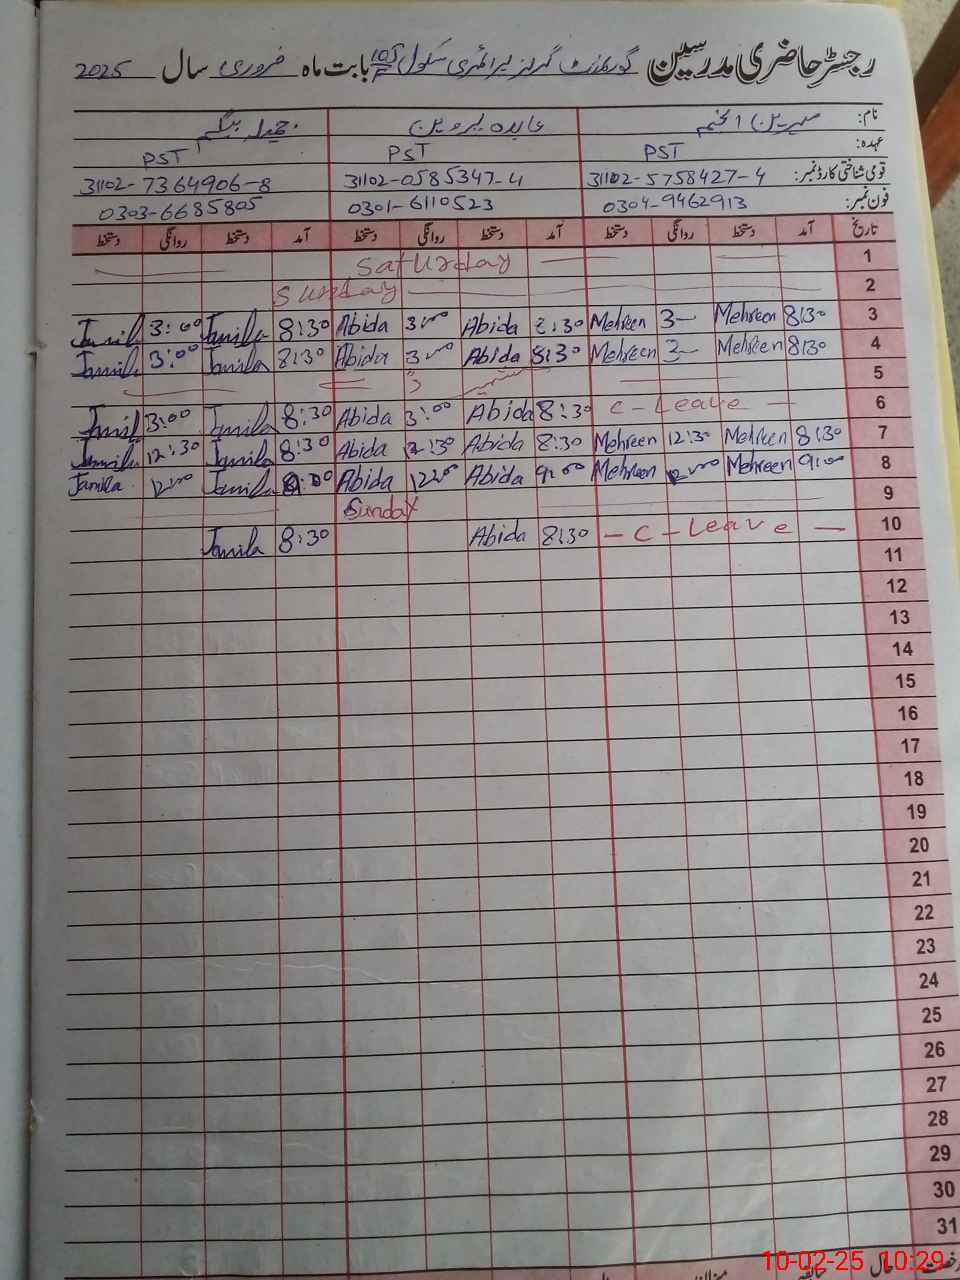 رجسٹر حاضری مدرسین گورنمنٹ گرلز پرائمری سکول 105/F بابت ماہ فروری سال 2025
نام: مہرین انجم عابدہ پروین جمیلہ بیگم
عہدہ: PST PST PST
قومی شناختی کارڈ نمبر: 31102-5758427-4 31102-0585347-4 31102-7364906-8
فون نمبر: 0304-9462913 0301-6110523 0303-6685805
تاریخ آمد دستخط روانگی دستخط آمد دستخط روانگی دستخط آمد دستخط روانگی دستخط
1 Saturday
2 Sunday
3 8:30 Mehreen 3 Mehreen 8:30 Abida 3:00 Abida 8:30 Jamila 3:00 Jamila
4 8:30 Mehreen 3 Mehreen 8:30 Abida 3:00 Abida 8:30 Jamila 3:00 Jamila
5
6 C-Leave 8:30 Abida 3:00 Abida 8:30 Jamila 3:00 Jamila
7 8:30 Mehreen 12:30 Mehreen 8:30 Abida 12:30 Abida 8:30 Jamila 12:30 Jamila
8 9:00 Mehreen 12:00 Mehreen 9:00 Abida 12:00 Abida 9:00 Jamila 12:00 Jamila
9 Sunday
10 - C - Leave - 8:30 Abida 8:30 Jamila
11
12
13
14
15
16
17
18
19
20
21
22
23
24
25
26
27
28
29
30
31
رخصت حال سابقہ میزان
10-02-25 10:29